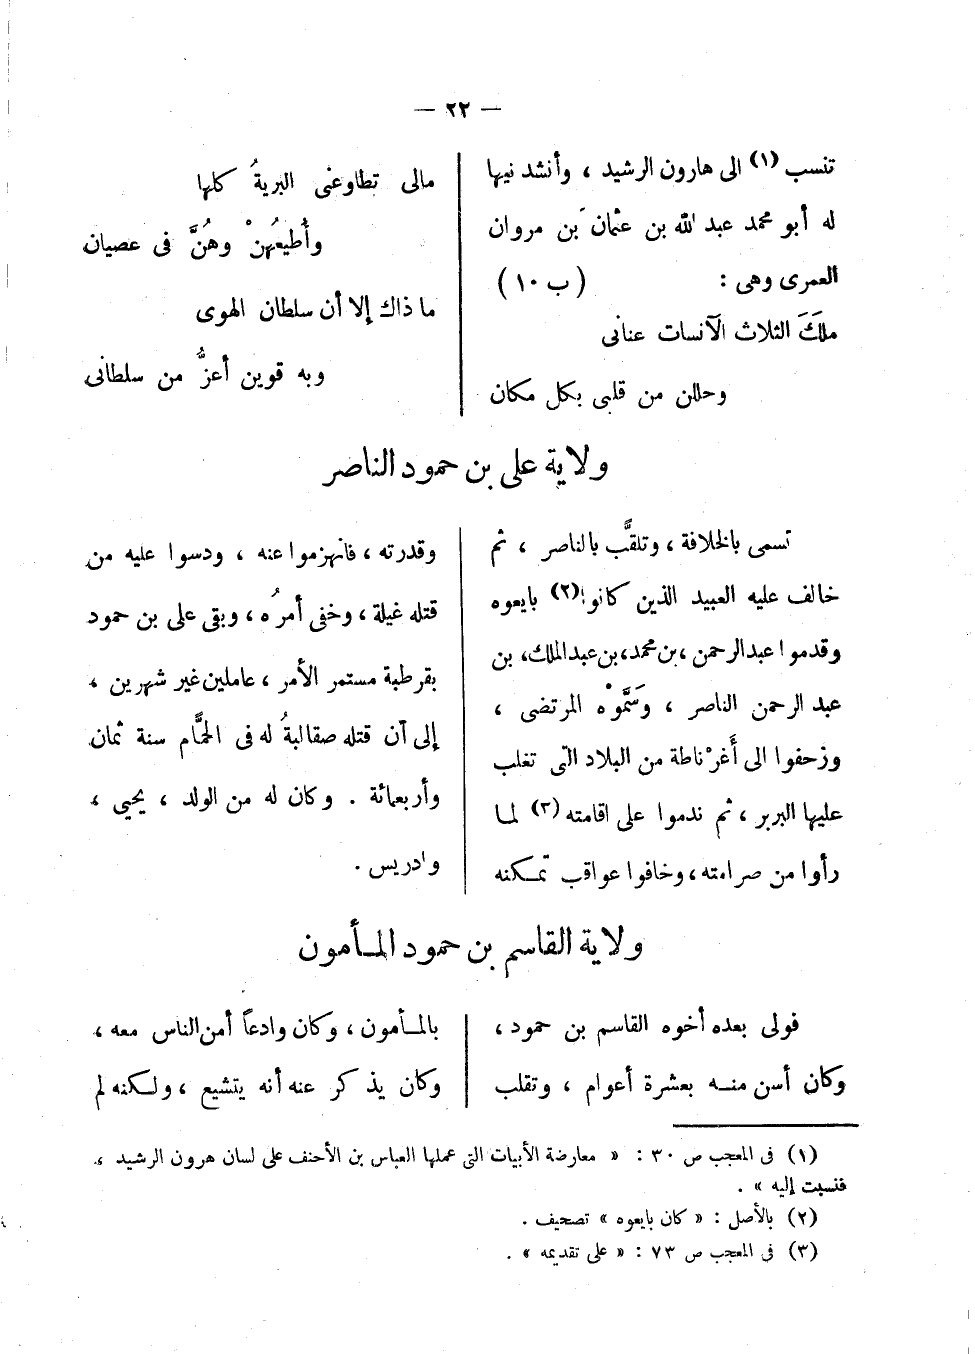 — ٢٢ —
تنسب (١) الى هارون الرشيد ، وأنشد نيها
له أبو محمد عبد الله بن عثمان بن مروان
العمرى وهى : ( ب ١٠ )
ملَكَ الثلاث الآنسات عنانى
وحللن من قلبى بكل مكان
مالى تطاوعنى البريةُ كلها
وأُطيعُهنْ وهُنَّ فى عصيان
ما ذاك إلا أن سلطان الهوى
وبه قوين أعزُّ من سلطانى
ولاية على بن حمود الناصر
تسمى بالخلافة ، وتلقَّب بالناصر ، ثم
خالف عليه العبيد الذين كانوا (٢) بايعوه
وقدموا عبد الرحمن ، بن محمد ، بن عبد الملك ، بن
عبد الرحمن الناصر ، وسَمَّوْه المرتضى ،
وزحفوا الى أَغرْناطة من البلاد التى تغلب
عليها البربر ، ثم ندموا على اقامته (٣) لما
رأوا من صرامته ، وخافوا عواقب تمكنه
وقدرته ، فانهزموا عنه ، ودسوا عليه من
قتله غيلة ، وخفى أمرُه ، وبقى على بن حمود
بقرطبة مستمر الأمر ، عاملين غير شهرين ،
إلى أن قتله صقالبةُ له فى الحمَّام سنة ثمان
وأربعمائة . وكان له من الولد ، يحيى ،
وادريس .
ولاية القاسم بن حمود المأمون
فولى بعده أخوه القاسم بن حمود ،
وكان أسن منه بعشرة أعوام ، وتقلب
بالمأمون ، وكان وادعاً أمن الناس معه ،
وكان يذكر عنه أنه يتشيع ، ولكنه لم
(١) فى المعجب ص ٣٠ : « معارضة الأبيات التى عملها العباس بن الأحنف على لسان هرون الرشيد ،
فنسبت إليه » .
(٢) بالأصل : « كان بايعوه » تصحيف .
(٣) فى المعجب ص ٧٣ : « على تقديمه » .